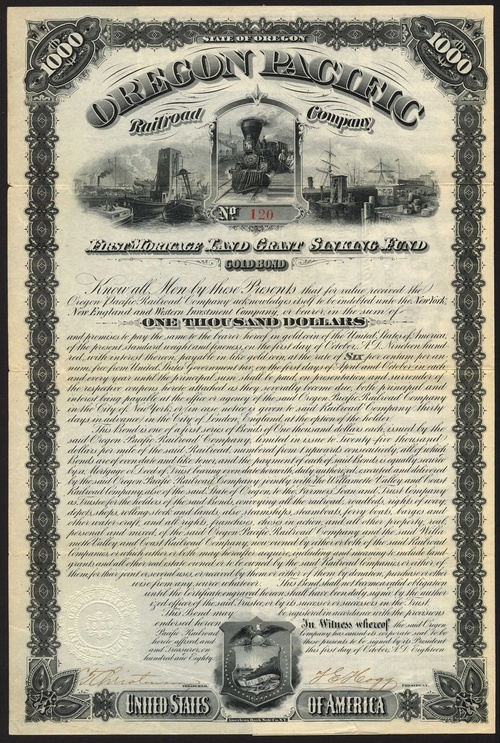 1000
STATE OF OREGON
1000
OREGON PACIFIC
Railroad Company
No 120
FIRST MORTGAGE LAND GRANT SINKING FUND
GOLD BOND
Know all Men by these Presents, that for value received the
Oregon Pacific Railroad Company acknowledges itself to be indebted unto the New York,
New England and Western Investment Company, or bearer, in the sum of
ONE THOUSAND DOLLARS
and promises to pay the same to the bearer hereof in gold coin of the United States of America,
of the present standard weight and fineness, on the first day of October, A.D. Nineteen hund
red, with interest thereon, payable in like gold coin, at the rate of Six per centum per an-
num, free from United States Government tax, on the first days of April and October in each
and every year until the principal sum shall be paid, on presentation and surrender of
the respective coupons hereto attached as they severally become due, both principal and
interest being payable at the office or agency of the said Oregon Pacific Railroad Company
in the City of New York, or in case notice is given to said Railroad Company thirty
days in advance in the City of London, England, at the option of the holder.
This Bond is one of a first series of Bonds of One thousand dollars each, issued by the
said Oregon Pacific Railroad Company, limited in issue to Twenty-five thousand
dollars per mile of the said Railroad, numbered from 1 upwards consecutively, all of which
Bonds are of even date and like tenor, and the payment of each of said Bonds is equally secured
by a Mortgage or Deed of Trust bearing even date herewith, duly authorized, executed and delivered
by the said Oregon Pacific Railroad Company jointly with the Willamette Valley and Coast
Railroad Company, also of the said State of Oregon, to the Farmers Loan and Trust Company
as Trustee for the holders of the said Bonds, conveying all the railroad, roadbeds, rights of way,
depots, shops, rolling stock and lands, also, steamships, steamboats, ferry boats, barges and
other water-craft and all rights, franchises, choses in action, and all other property, real,
personal and mixed, of the said Oregon Pacific Railroad Company and the said Willa-
mette Valley and Coast Railroad Company, now owned by either or both of the said Railroad
Companies, or which either or both may hereafter acquire, including and meaning to include land-
grants and all other real estate owned or to be owned by the said Railroad Companies, or either of
them for their joint or several uses, or received by them or either of them by donation, purchase or other-
wise from any source whatever. This Bond shall not become a valid obligation
until the Certificate engraved hereon shall have been duly signed by the author
ized officer of the said Trustee, or by its successor or successors in the Trust.
This Bond may be registered in accordance with the provisions
endorsed hereon. In Witness whereof the said Oregon
Pacific Railroad Company has caused its corporate seal to be
hereto affixed, and these presents to be signed by its President
and Treasurer, on this first day of October, A.D. Eighteen
hundred and Eighty.
TREASURER.
T. E. Hogg
PRESIDENT.
UNITED STATES OF AMERICA
American Bank Note Co. N.Y.